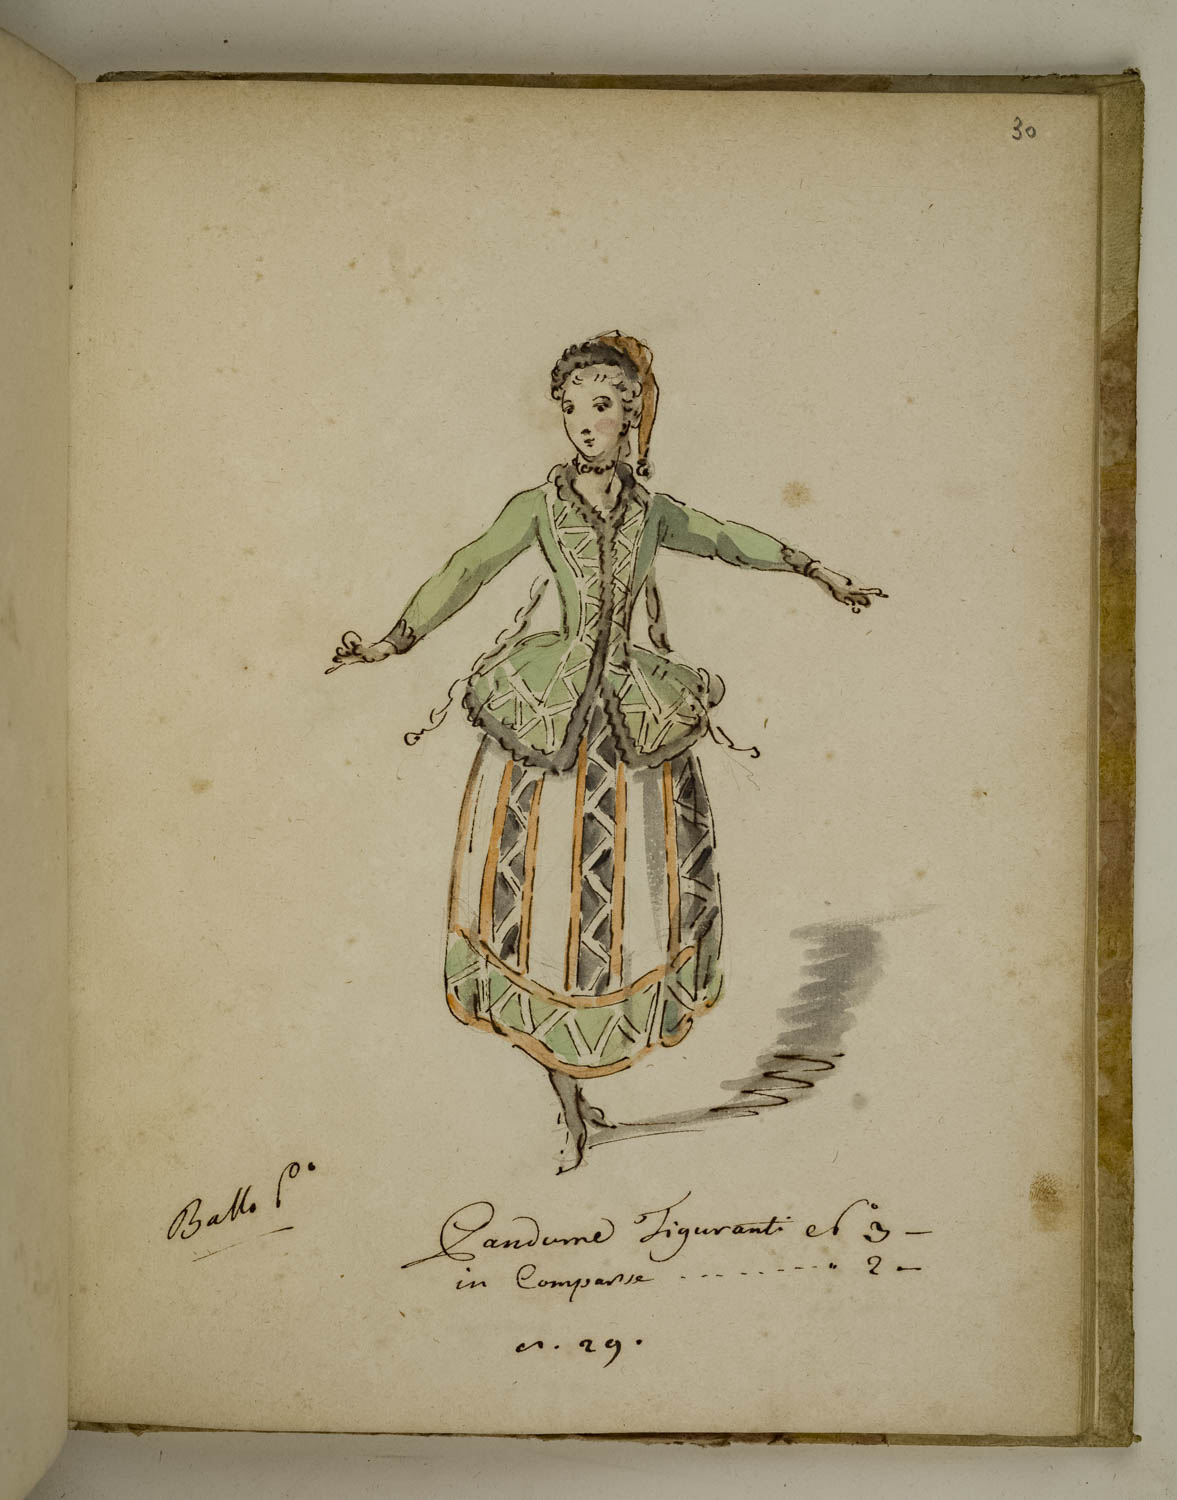 30
Ballo P.º
Pandume Figuranti Nº 3 —
in Comparse - - - - - - - - " 2 —
N. 29.